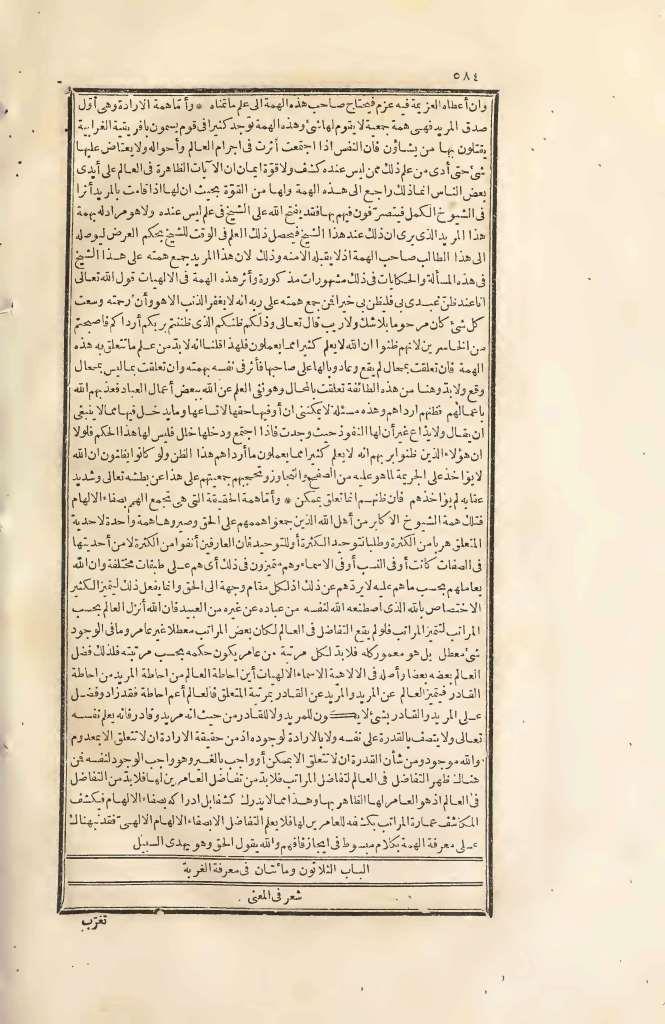 ٥٨٤
وان أعطاه العزيمة فيه عزم فيحتاج صاحب هذه الهمة الى علم ما تمناه * وأما همة الارادة وهى أول
صدق المريد فهى همة جمعية لا يقوم لها شئ وهذه الهمة توجد كثيرا فى قوم يسمون بافريقية الغرابية
يقتلون بها من يشاؤن فان النفس اذا اجتمعت أثرت فى اجرام العالم وأحواله ولا يعتاض عليها
شئ حتى أدى من علم ذلك ممن ليس عنده كشف ولا قوة ايمان ان الآيات الظاهرة فى العالم على أيدى
بعض الناس انما ذلك راجع الى هذه الهمة ولها من القوة بحيث ان لها اذا قامت بالمريد أثرا
فى الشيوخ الكمل فيتصرفون فيهم بها فقد يفتح الله على الشيخ فى علم ليس عنده ولا هو مراد له بهمة
هذا المريد الذى يرى ان ذلك عند هذا الشيخ فيحصل ذلك العلم فى الوقت للشيخ بحكم العرض ليوصله
الى هذا الطالب صاحب الهمة اذ لا يقبله الا منه وذلك لان هذا المريد جمع همته على هذا الشيخ
فى هذه المسألة والحكايات فى ذلك مشهورات مذكورة وأثر هذه الهمة فى الالهيات قول الله تعالى
انا عند ظن عبدى بى فليظن بى خيرا فمن جمع همته على ربه انه لا يغفر الذنب الا هو وأن رحمته وسعت
كل شئ كان مرحوما بلا شك ولا ريب قال تعالى وذلكم ظنكم الذى ظننتم بربكم أرداكم فاصبحتم
من الخاسرين لانهم ظنوا ان الله لا يعلم كثيرا مما يعملون فلهذا قلنا انه لا بد من علم ما تتعلق به هذه
الهمة فان تعلقت بمحال لم يقع وعاد وبالها على صاحبها فأثر فى نفسه بهمته وان تعلقت بما ليس بمحال
وقع ولا بد وهنا من هذه الطائفة تعلقت بالمحال وهو نفى العلم عن الله ببعض أعمال العباد فعذبهم الله
باعمالهم فظنهم ارداهم وهذه مسئلة لا يمكننى ان أوفيها حقها لاتساعها وما يدخل فيها مما لا ينبغى
ان يقال ولا يذاع غير أن لها النفوذ حيث وجدت فاذا اجتمع ودخلها خلل فليس لها هذا الحكم فلولا
ان هؤلاء الذين ظنوا بربهم انه لا يعلم كثيرا مما يعملون ما أرداهم هذا الظن ولو كانوا يظنون ان الله
لا يؤاخذ على الجريمة لما هو عليه من الصفح والتجاوز وتحجبهم جمعيتهم على هذا عن بطشه تعالى وشديد
عقابه لم يؤاخذهم فان ظنهم انما تعلق بممكن * وأما همة الحقيقة التى هى تجمع الهم بصفاء الالهام
فتلك همة الشيوخ الاكابر من أهل الله الذين جمعوا هممهم على الحق وصيروها همة واحدة لاحدية
المتعلق هربا من الكثرة وطلبا لتوحيد الكثرة أو للتوحيد فان العارفين أنفوا من الكثرة لا من أحديتها
فى الصفات كانت أو فى النسب أو فى الاسماء وهم متميزون فى ذلك أى هم على طبقات مختلفة وان الله
يعاملهم بحسب ما هم عليه لا يردهم عن ذلك اذ لكل مقام وجهة الى الحق وانما يفعل ذلك ليتميز الكثير
الاختصاص بالله الذى اصطنعه الله لنفسه من عباده عن غيره من العبيد فان الله أنزل العالم بحسب
المراتب لتعمير المراتب فلو لم يقع التفاضل فى العالم لكان بعض المراتب معطلا غير عامر وما فى الوجود
شئ معطل بل هو معمور كله فلا بد لكل مرتبة من عامر يكون حكمه بحسب مرتبته فلذلك فضل
العالم بعضه بعضا وأصله فى الالاهية الاسماء الالهيات أين احاطة العالم من احاطة المريد من احاطة
القادر فيتميز العالم عن المريد والمريد عن القادر بمرتبة المتعلق فالعالم أعم احاطة فقد زاد وفضل
على المريد والقادر بشئ لا يكون للمريد ولا للقادر من حيث انه مريد وقادر فانه يعلم نفسه
تعالى ولا يتصف بالقدرة على نفسه ولا بالارادة لوجوده اذ من حقيقة الارادة ان لا تتعلق الا بمعدوم
والله موجود ومن شأن القدرة ان لا تتعلق الا بممكن أو واجب بالغير وهو واجب الوجود لنفسه فمن
هناك ظهر التفاضل فى العالم لتفاضل المراتب فلا بد من تفاضل العامرين لها فلا بد من التفاضل
فى العالم اذ هو العامر لها الظاهر بها وهذا مما لا يدرك كشفا بل ادراكه بصفاء الالهام فيكشف
المكاشف عمارة المراتب بكشفه للعامرين لها فلا يعلم التفاضل الا بصفاء الالهام الالهى فقد نبهناك
على معرفة الهمة بكلام مبسوط فى ايجاز فافهم والله يقول الحق وهو يهدى السبيل
الباب الثلاثون ومائتان فى معرفة الغربة
شعر فى المعنى
تغرب